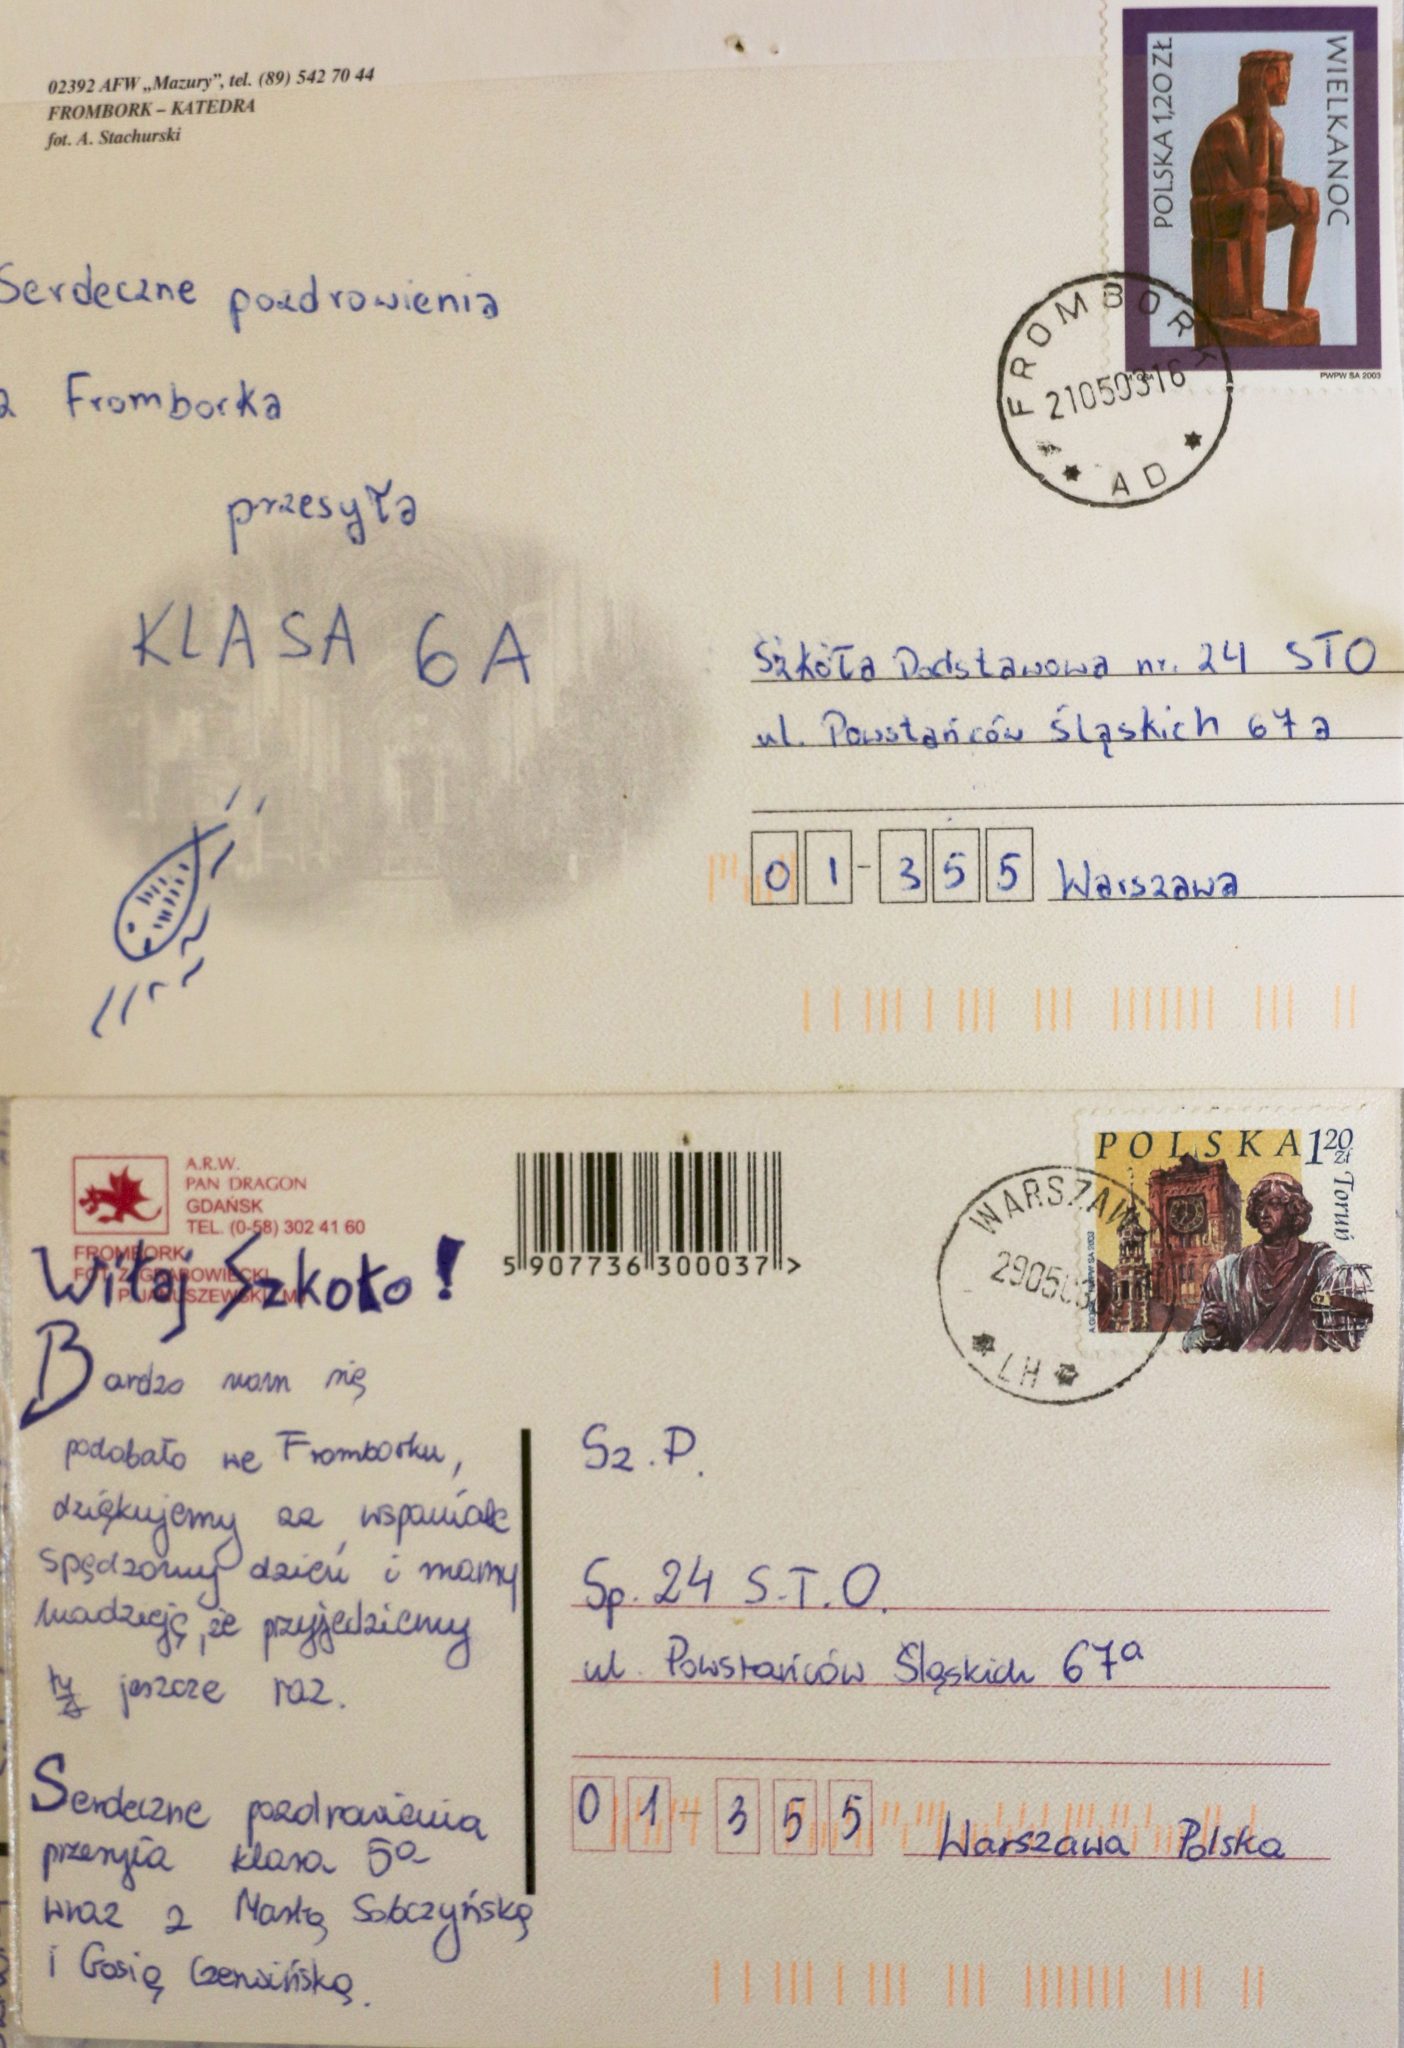 02392 AFW „Mazury”, tel. (89) 542 70 44
FROMBORK – KATEDRA
fot. A. Stachurski
POLSKA 1,20 ZŁ
WIELKANOC
PWPW SA 2003
FROMBORK
21050316
AD
Serdeczne pozdrowienia
z Fromborka
przesyła
KLASA 6A
Szkoła Podstawowa nr. 24 STO
ul. Powstańców Śląskich 67a
01-355 Warszawa
A.R.W.
PAN DRAGON
GDAŃSK
TEL. (0-58) 302 41 60
FROMBORK
5 907736 300037 >
POLSKA 1 20 zł
Toruń
WARSZAW
LH
Witaj Szkoło!
Bardzo nam się
podobało we Fromborku,
dziękujemy za wspaniale
spędzony dzień i mamy
nadzieję, że przyjedziemy
tu jeszcze raz.
Serdeczne pozdrowienia
przesyła klasa 5a
wraz z Martą Sobczyńską
i Gosią Czerwińską.
Sz. P.
Sp. 24 S.T.O.
ul. Powstańców Śląskich 67a
01-355 Warszawa Polska